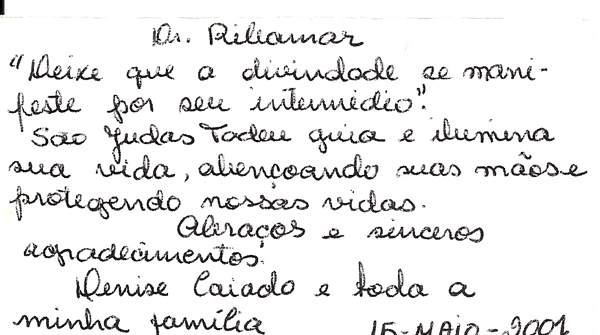 Dr. Ribamar
"Deixe que a divindade se mani-
feste por seu intermédio".
São Judas Tadeu guia e ilumina
sua vida, abençoando suas mãos e
protegendo nossas vidas.
Abraços e sinceros
agradecimentos.
Denise Caiado e toda a
minha família
15-MAIO-2001